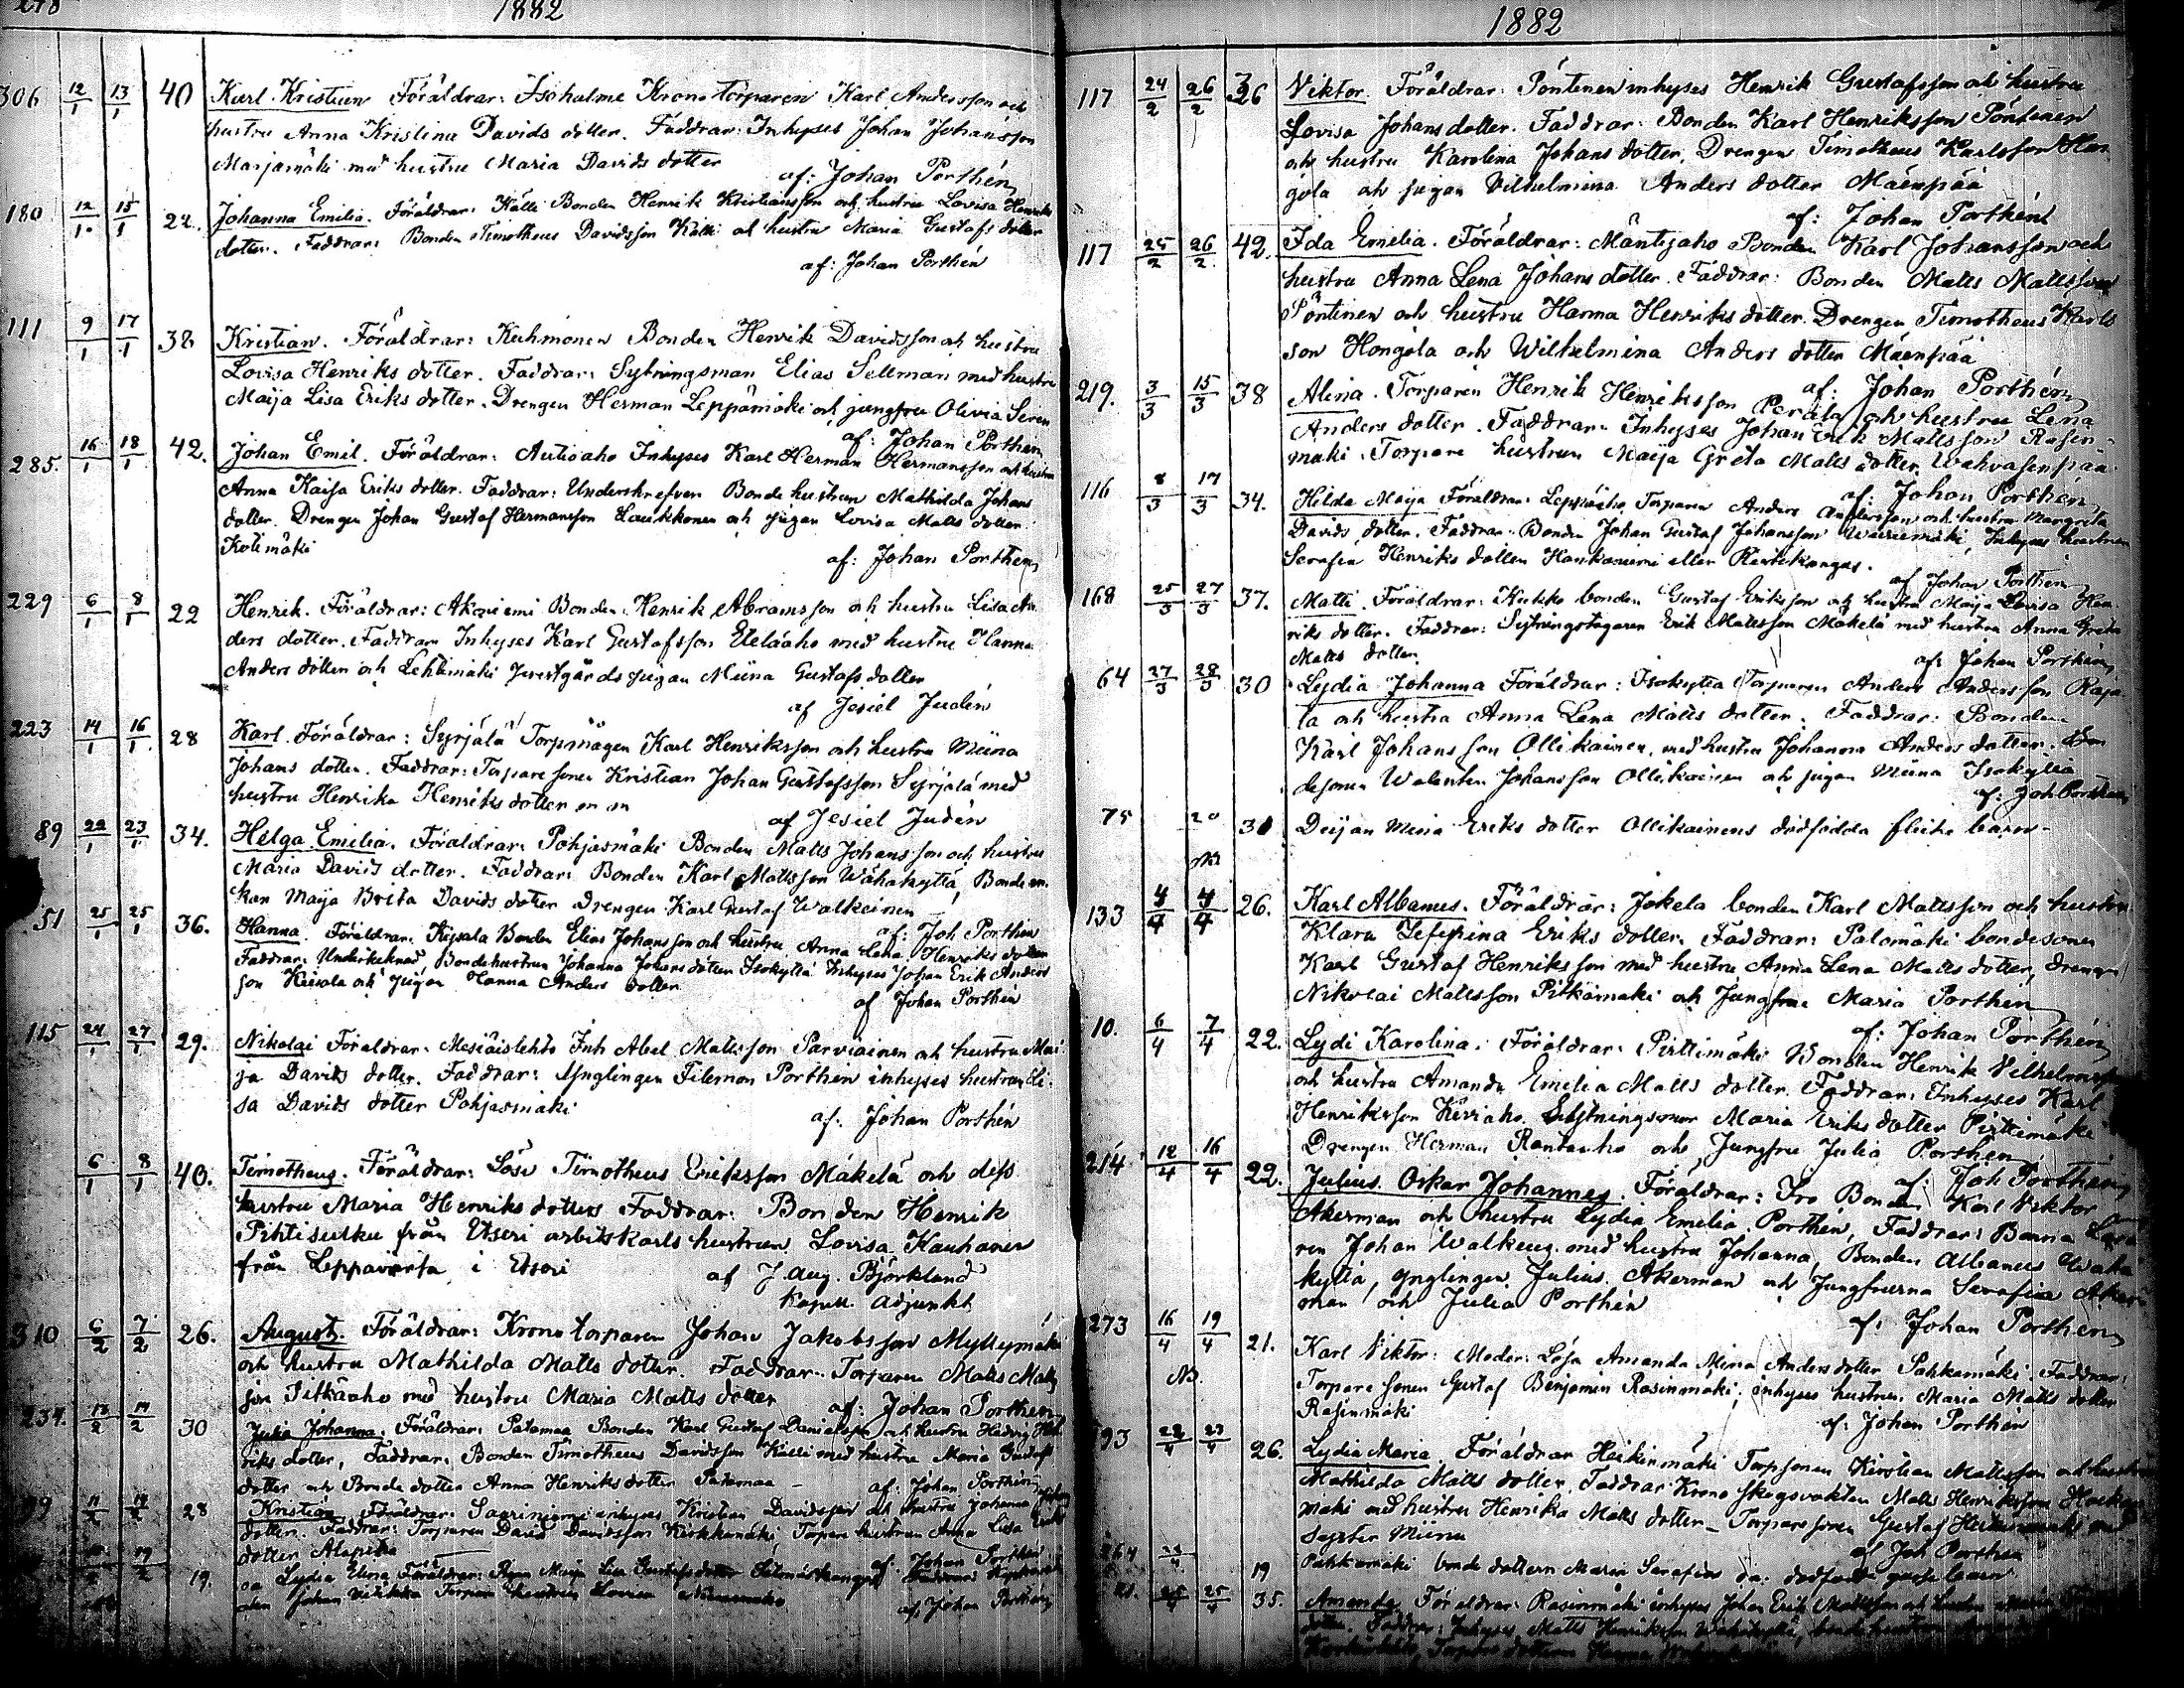 278
1882
306 12/1 13/1 40 Karl Kristian Föräldrar: Isohalme Kronotorparen Karl Andersson och
hustru Anna Kristina Davids dotter. Faddrar: Inhyses Johan Johansson
Marjamäki med hustru Maria Davids dotter
af: Johan Porthén
180 12/1 15/1 22. Johanna Emilia. Föräldrar: Källi Bonden Henrik Kristiansson och hustru Lovisa Henriks
dotter. Faddrar: Bonden Timotheus Davidsson Källi och hustru Maria Gustafs dotter
af: Johan Porthén
111 9/1 17/1 38 Kristian. Föräldrar: Kuhmonen Bonden Henrik Davidsson och hustru
Lovisa Henriks dotter. Faddrar: Sytningsman Elias Sellman med hustru
Maija Lisa Eriks dotter. Drengen Herman Leppämäki och jungfru Olivia Seren
af: Johan Porthén
285. 16/1 18/1 42. Johan Emil. Föräldrar: Autioaho Inhyses Karl Herman Hermansson och hustru
Anna Kaisa Eriks dotter. Faddrar: Underskrefven Bonde hustrun Mathilda Johans
dotter. Drengen Johan Gustaf Hermansson Laukkonen och pigan Lovisa Matts dotter
Kotimäki
af: Johan Porthén
229 6/1 8/1 22 Henrik. Föräldrar: Akoniemi Bonden Henrik Abramsson och hustru Lisa An
ders dotter. Faddrar Inhyses Karl Gustafsson Eteläaho med hustru Hanna
Anders dotter och Lehtimäki prestgårds pigan Miina Gustafs dotter
af Jesiel Judén
223 14/1 16/1 28 Karl. Föräldrar: Syrjälä Torpmågen Karl Henriksson och hustru Miina
Johans dotter. Faddrar: Torpare sonen Kristian Johan Gustafsson Syrjälä med
hustru Henrika Henriks dotter
af Jesiel Judén
89 22/1 23/1 34. Helga Emilia. Föräldrar: Pohjasmäki Bonden Matts Johansson och hustru
Maria Davids dotter. Faddrar: Bonden Karl Mattsson Wähäkyttä, Bonde en
kan Maija Brita Davids dotter Drengen Karl Gustaf Walkeinen
af: Joh Porthén
51 25/1 25/1 36. Hanna. Föräldrar: Kiisala Bonden Elias Johansson och hustru Anna Lena Henriks dotter
Faddrar: Underteknad, Bondehustrun Johanna Johans dotter Isokyttä Inhyses Johan Erik Anders
son Kiisala och pigan Hanna Anders dotter
af Johan Porthén
115 24/1 27/1 29. Nikolai Föräldrar: Mesiäislehto Inh Abel Mattsson Parviainen och hustru Mai
ja Davids dotter. Faddrar: Ynglingen Filemon Porthén inhyses hustrun Li
sa Davids dotter Pohjasmäki
af: Johan Porthén
6/1 8/1 40. Timotheus. Föräldrar: Löse Timotheus Eriksson Mäkelä och dess
hustru Maria Henriks dotter Faddrar: Bonden Henrik
Pihtisulku från Etseri arbetskarls hustrun Lovisa Kauhanen
från Leppävirta i Etseri
af J Aug. Björklund
Kapell. Adjunkt
310 6/2 7/2 26. August. Föräldrar: Krono torparen Johan Jakobsson Myllymäki
och hustru Mathilda Matts dotter. Faddrar: Torparen Matts Matts
son Pitkäaho med hustru Maria Matts dotter
af: Johan Porthén
234. 13/2 14/2 30 Julia Johanna. Föräldrar: Patamaa Bonden Karl Gustaf Danielsson och hustru Hedvig Hen
riks dotter, Faddrar: Bonden Timotheus Davidsson Källi med hustru Maria Gustafs
dotter och Bonde dotter Anna Henriks dotter Patamaa
af: Johan Porthén
28 Kristian. Föräldrar: Saariniemi inhyses Kristian Davidsson och hustru Johanna
dotter. Faddrar: Torparen David Davidsson Kirkkomäki, Torpare hustrun Anna Lisa Eriks
dotter
af: Johan Porthén
19. Lydia Elina Föräldrar: Pigan Maija Lisa Gustafs dotter
Johan Torpare hustrun Lovisa
af: Johan Porthén
1882
117 24/2 26/2 36 Viktor. Föräldrar: Pöntinen inhyses Henrik Gustafsson och hustru
Lovisa Johans dotter. Faddrar: Bonden Karl Henriksson Pöntinen
och hustru Karolina Johans dotter, Drengen Timotheus Karlsson Hon
gola och pigan Vilhelmina Anders dotter Mäenpää
af: Johan Porthén
117 25/2 26/2 42. Ida Emelia. Föräldrar: Mäntyaho Bonden Karl Johansson och
hustru Anna Lena Johans dotter. Faddrar: Bonden Matts Mattsson
Pöntinen och hustru Hanna Henriks dotter. Drengen Timotheus Karls
son Hongola och Wilhelmina Anders dotter Mäenpää
af: Johan Porthén
219. 3/3 15/3 38 Alina. Torparen Henrik Henriksson Perälä och hustru Lena
Anders dotter. Faddrar: Inhyses Johan Erik Mattsson Rasin-
mäki. Torpare hustrun Maija Greta Matts dotter Wahvasenpää
af: Johan Porthén
116 8/3 17/3 34. Hilda Maija Föräldrar: Leppäaho Torparen Anders Andersson och hustru Margreta
Davids dotter. Faddrar: Bonden Johan Gustaf Johansson Wuorenmäki, Inhyses hustrun
Serafia Henriks dotter Hankaniemi eller Ristikangas.
af Johan Porthén
168 25/3 27/3 37. Matti. Föräldrar: Kukko bonden Gustaf Eriksson och hustru Maija Lovisa Hen
riks dotter. Faddrar: Sytningstagaren Erik Mattsson Mäkelä med hustru Anna Greta
Matts dotter
af: Johan Porthén
64 27/3 28/3 30 Lydia Johanna Föräldrar: Isokyttä Torparen Anders Andersson Raja
la och hustru Anna Lena Matts dotter. Faddrar: Bonden
Karl Johansson Ollikainen med hustru Johanna Anders dotter. Bon
desonen Walentin Johansson Ollikainen och pigan Miina Isokyttä
af: Joh Porthén
75 20 31 Deijan Mina Eriks dotter Ollikainens dödfödda flicke barn.
133 4/4 4/4 26. Karl Albanus. Föräldrar: Jokela bonden Karl Mattsson och hustru
Klara Eriks dotter. Faddrar: Palomäki bondesonen
Karl Gustaf Henriksson med hustru Anna Lena Matts dotter, drengen
Nikolai Mattsson Pitkämäki och Jungfru Maria Porthén
af: Johan Porthén
10. 6/4 7/4 22. Lydi Karolina. Föräldrar: Pirttimäki Bonden Henrik Vilhelmsson
och hustru Amanda Emelia Matts dotter. Faddrar: Inhyses Karl
Henriksson Kiviaho. Maria Eriks dotter Pirttimäki
Drengen Herman Rantaaho och Jungfru Julia Porthén
af: Joh Porthén
214 12/4 16/4 22. Julius Oskar Johannes. Föräldrar: Iro Bonden Karl Viktor
Åkerman och hustru Lydia Emelia Porthén, Faddrar: Barna Lära
ren Johan Walkeus med hustru Johanna, Bonden Albanus Wähä
kyttä, ynglingen Julius Åkerman och Jungfrurna Serafia Åker
man och Julia Porthén
af: Johan Porthén
273 16/4 19/4 21. Karl Viktor: Moder: Lösa Amanda Mina Anders dotter Pahkamäki. Faddrar:
NB. Torpare sonen Gustaf Benjamin Rasinmäki, inhyses hustrun Maria Matts dotter
Rasinmäki
af: Johan Porthén
93 22/4 23/4 26. Lydia Maria. Föräldrar Heikinmäki Torpsonen Kristian Mattsson och hustru
Mathilda Matts dotter. Faddrar Krono skogsvakten Matts Henriksson
mäki med hustru Henrika Matts dotter - Torpare sonen Gustaf Heikinmäki med
syster Miina
af Joh Porthén
264 19 Pahkamäki bonde dottern Maria Serafias dödfödda gosse barn
25/4 25/4 35. Amanda Föräldrar: Rasinmäki inhyses Johan Erik Mattsson och hustru
dotter. Faddrar: Inhyses Matts Henriksson